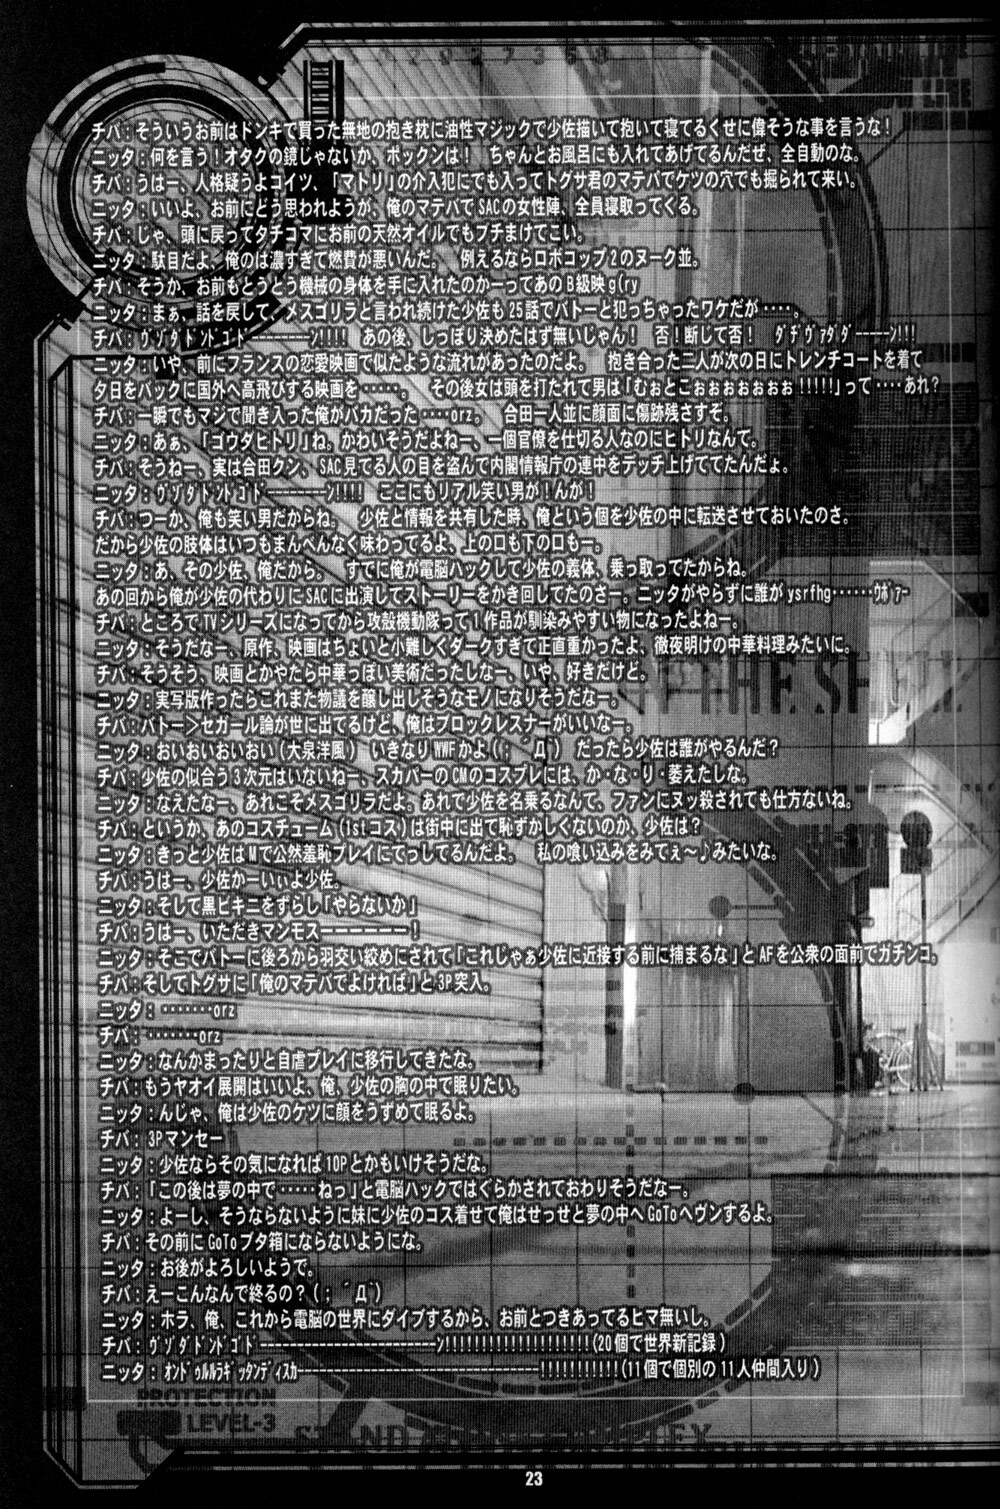 チバ：そういうお前はドンキで買った無地の抱き枕に油性マジックで少佐描いて抱いて寝てるくせに偉そうな事を言うな！
ニッタ：何を言う！オタクの鏡じゃないか、ボックンは！　ちゃんとお風呂にも入れてあげてるんだぜ、全自動のな。
チバ：うはー、人格疑うよコイツ、「マトリ」の介入犯にでも入ってトグサ君のマテバでケツの穴でも掘られて来い。
ニッタ：いいよ、お前にどう思われようが、俺のマテバでSACの女性陣、全員寝取ってくる。
チバ：じゃ、頭に戻ってタチコマにお前の天然オイルでもブチまけてこい。
ニッタ：駄目だよ、俺のは濃すぎて燃費が悪いんだ。　例えるならロボコップ2のヌーク並。
チバ：そうか、お前もとうとう機械の身体を手に入れたのかーってあのB級映g(ry
ニッタ：まぁ、話を戻して、メスゴリラと言われ続けた少佐も25話でバトーと犯っちゃったワケだが‥‥。
チバ：ｳﾞｿﾞﾀﾞﾄﾞﾝﾄﾞｺﾞﾄﾞ---------ﾝ!!!!　あの後、しっぽり決めたはず無いじゃん！　否！断じて否！　ﾀﾞﾁﾞｳﾞｧﾀﾞﾀﾞｰ----ﾝ!!!
ニッタ：いや、前にフランスの恋愛映画で似たような流れがあったのだよ。　抱き合った二人が次の日にトレンチコートを着て
夕日をバックに国外へ高飛びする映画を‥‥‥。　その後女は頭を打たれて男は「むぉとこぉぉぉぉぉぉぉ!!!!!」って‥‥あれ？
チバ：一瞬でもマジで聞き入った俺がバカだった‥‥orz。　合田一人並に顔面に傷跡残さすぞ。
ニッタ：あぁ、「ゴウダヒトリ」ね。かわいそうだよねー、一個官僚を仕切る人なのにヒトリなんて。
チバ：そうねー、実は合田クン、SAC見てる人の目を盗んで内閣情報庁の連中をデッチ上げててたんだょ。
ニッタ：ｳﾞｿﾞﾀﾞﾄﾞﾝﾄﾞｺﾞﾄﾞｰ--------ﾝ!!!!　ここにもリアル笑い男が！んが！
チバ：つーか、俺も笑い男だからね。　少佐と情報を共有した時、俺という個を少佐の中に転送させておいたのさ。
だから少佐の肢体はいつもまんべんなく味わってるよ、上の口も下の口もー。
ニッタ：あ、その少佐、俺だから。　すでに俺が電脳ハックして少佐の義体、乗っ取ってたからね。
あの回から俺が少佐の代わりにSACに出演してストーリーをかき回してたのさー。ニッタがやらずに誰がysrfhg‥‥‥ｳﾎﾞｧｰ
チバ：ところでTVシリーズになってから攻殻機動隊って1作品が馴染みやすい物になったよねー。
ニッタ：そうだなー、原作、映画はちょいと小難しくダークすぎて正直重かったよ、徹夜明けの中華料理みたいに。
チバ：そうそう、映画とかやたら中華っぽい美術だったしなー、いや、好きだけど。
ニッタ：実写版作ったらこれまた物議を醸し出しそうなモノになりそうだなー。
チバ：バトー＞セガール論が世に出てるけど、俺はブロックレスナーがいいなー。
ニッタ：おいおいおいおい（大泉洋風）　いきなりWWFかよ(；゜Д゜)　だったら少佐は誰がやるんだ？
チバ：少佐の似合う3次元はいないねー、スカパーのCMのコスプレには、か・な・り・萎えたしな。
ニッタ：なえたなー、あれこそメスゴリラだよ。あれで少佐を名乗るなんて、ファンにヌッ殺されても仕方ないね。
チバ：というか、あのコスチューム（1stコス）は街中に出て恥ずかしくないのか、少佐は？
ニッタ：きっと少佐はMで公然羞恥プレイにてっしてるんだよ。　私の喰い込みをみてぇ～♪みたいな。
チバ：うはー、少佐かーいぃよ少佐。
ニッタ：そして黒ビキニをずらし「やらないか」
チバ：うはー、いただきマンモスーーーーーーー！
ニッタ：そこでバトーに後ろから羽交い絞めにされて「これじゃぁ少佐に近接する前に捕まるな」とAFを公衆の面前でガチンコ。
チバ：そしてトグサに「俺のマテバでよければ」と3P突入。
ニッタ：‥‥‥‥orz
チバ：‥‥‥‥orz
ニッタ：なんかまったりと自虐プレイに移行してきたな。
チバ：もうヤオイ展開はいいよ、俺、少佐の胸の中で眠りたい。
ニッタ：んじゃ、俺は少佐のケツに顔をうずめて眠るよ。
チバ：3Pマンセー
ニッタ：少佐ならその気になれば10Pとかもいけそうだな。
チバ：「この後は夢の中で‥‥‥ねっ」と電脳ハックではぐらかされておわりそうだなー。
ニッタ：よーし、そうならないように妹に少佐のコス着せて俺はせっせと夢の中へGoToヘヴンするよ。
チバ：その前にGoToブタ箱にならないようにな。
ニッタ：お後がよろしいようで。
チバ：えーこんなんで終るの？(；゜Д゜)
ニッタ：ホラ、俺、これから電脳の世界にダイブするから、お前とつきあってるヒマ無いし。
チバ：ｳﾞｿﾞﾀﾞﾄﾞﾝﾄﾞｺﾞﾄﾞｰ-----------------------ﾝ!!!!!!!!!!!!!!!!!!!!(20個で世界新記録)
ニッタ：ｵﾝﾄﾞｩﾙﾙﾗｷﾞｯﾀﾝﾃﾞｨｽｶｰ-------------------------------!!!!!!!!!!!(11個で個別の11人仲間入り)
PROTECTION
LEVEL-3
23